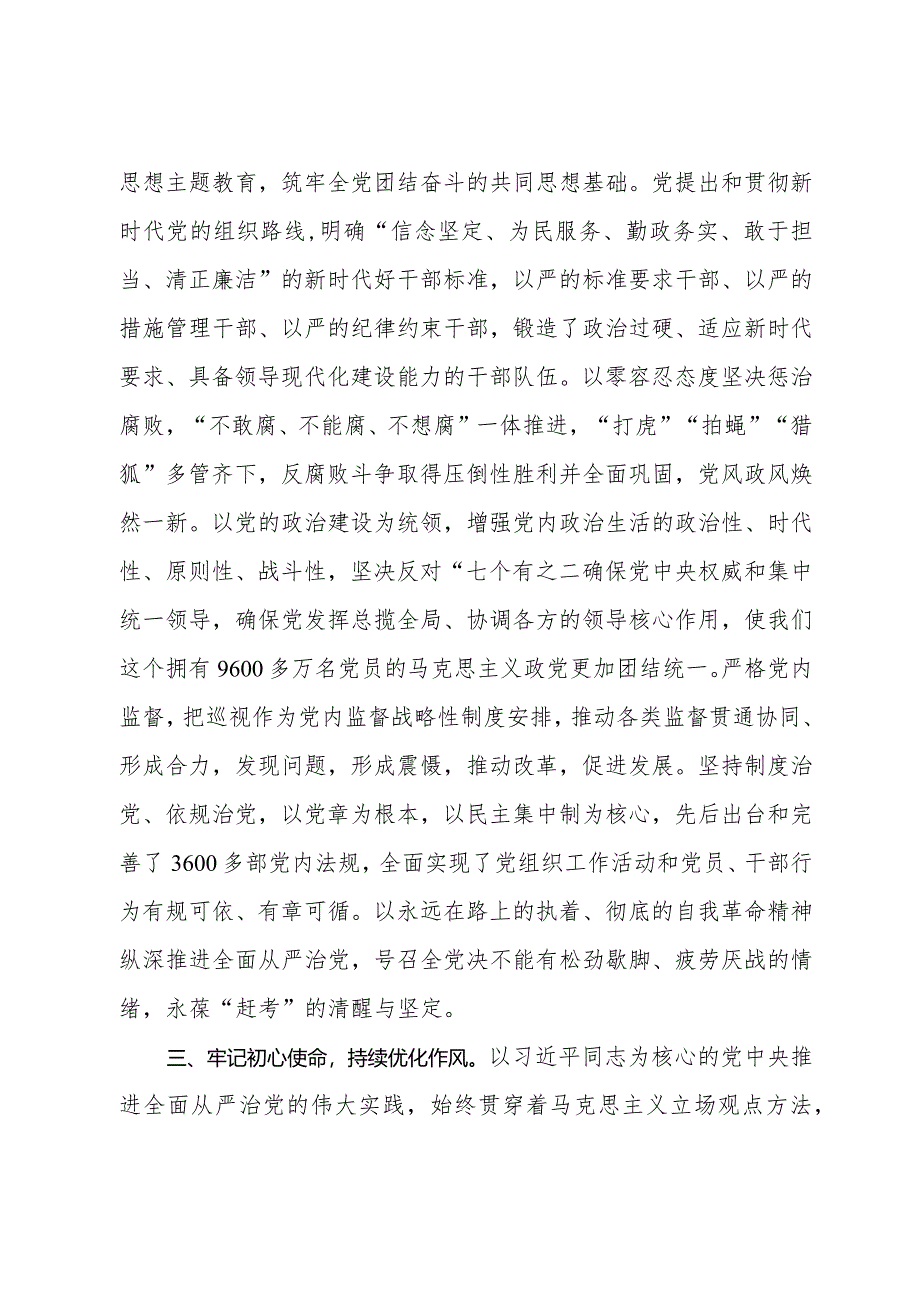 思想主题教育，筑牢全党团结奋斗的共同思想基础。党提出和贯彻新
时代党的组织路线,明确“信念坚定、为民服务、勤政务实、敢于担
当、清正廉洁”的新时代好干部标准，以严的标准要求干部、以严的
措施管理干部、以严的纪律约束干部，锻造了政治过硬、适应新时代
要求、具备领导现代化建设能力的干部队伍。以零容忍态度坚决惩治
腐败，“不敢腐、不能腐、不想腐”一体推进，“打虎”“拍蝇”“猎
狐”多管齐下，反腐败斗争取得压倒性胜利并全面巩固，党风政风焕
然一新。以党的政治建设为统领，增强党内政治生活的政治性、时代
性、原则性、战斗性，坚决反对“七个有之二确保党中央权威和集中
统一领导，确保党发挥总揽全局、协调各方的领导核心作用，使我们
这个拥有 9600 多万名党员的马克思主义政党更加团结统一。严格党内
监督，把巡视作为党内监督战略性制度安排，推动各类监督贯通协同、
形成合力，发现问题，形成震慑，推动改革，促进发展。坚持制度治
党、依规治党，以党章为根本，以民主集中制为核心，先后出台和完
善了 3600 多部党内法规，全面实现了党组织工作活动和党员、干部行
为有规可依、有章可循。以永远在路上的执着、彻底的自我革命精神
纵深推进全面从严治党，号召全党决不能有松劲歇脚、疲劳厌战的情
绪，永葆“赶考”的清醒与坚定。
三、牢记初心使命，持续优化作风。以习近平同志为核心的党中央推
进全面从严治党的伟大实践，始终贯穿着马克思主义立场观点方法，